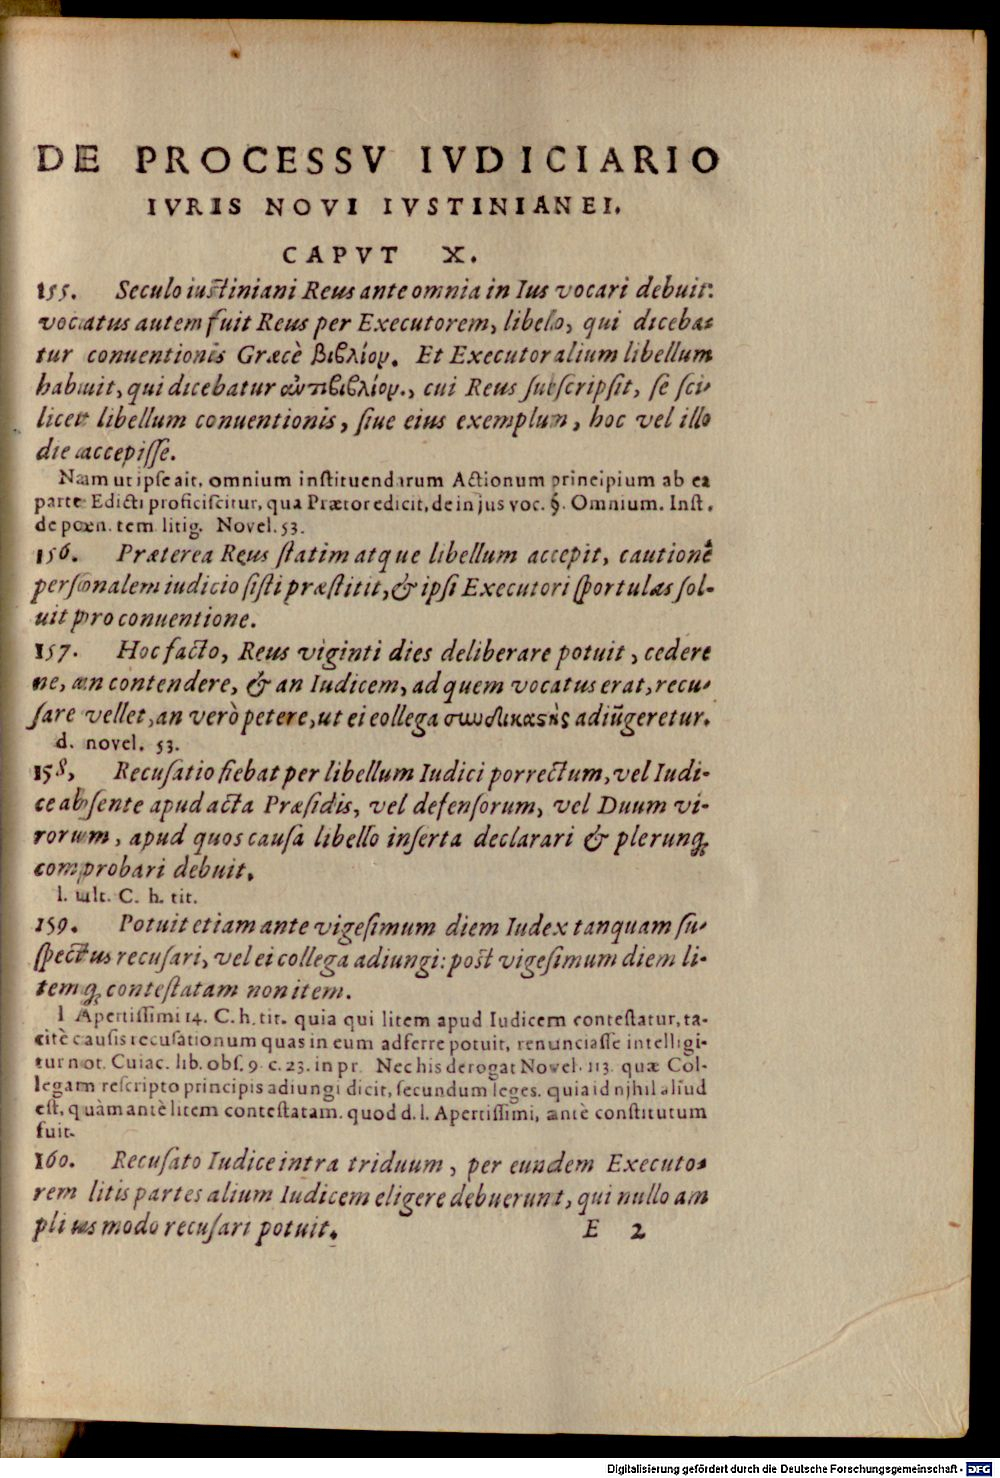 DE PROCESSV IVDICIARIO
IVRIS NOVI IVSTINIANEI.
CAPVT X.
155. Seculo iustiniani Reus ante omnia in Ius vocari debuit:
vocatus autem fuit Reus per Executorem, libelo, qui diceba-
tur conuentionis Græcè βιβλίον. Et Executor alium libellum
habuit, qui dicebatur ἀντιβιβλίον., cui Reus subscripsit, se sci-
licet libellum conuentionis, siue eius exemplum, hoc vel illo
die accepisse.
Nam ut ipse ait, omnium instituendarum Actionum principium ab ea
parte Edicti proficiscitur, qua Prætor edicit, de in jus voc. §. Omnium. Inst.
de pœn. tem litig. Novel. 53.
156. Præterea Reus statim atque libellum accepit, cautionē
personalem iudicio sisti præstitit, & ipsi Executori sportulas sol-
uit pro conuentione.
157. Hoc facto, Reus viginti dies deliberare potuit, cedere
ne, an contendere, & an Iudicem, ad quem vocatus erat, recu-
sare vellet, an verò petere, ut ei eollega συνδικαστὴς adiūgeretur.
d. novel. 53.
158, Recusatio fiebat per libellum Iudici porrectum, vel Iudi-
ce absente apud acta Præsidis, vel defensorum, vel Duum vi-
rorum, apud quos causa libello inserta declarari & plerunq;
comprobari debuit.
l. ult. C. h. tit.
159. Potuit etiam ante vigesimum diem Iudex tanquam su-
spectus recusari, vel ei collega adiungi: post vigesimum diem li-
temq; contestatam non item.
l Apertissimi 14. C. h. tit. quia qui litem apud Iudicem contestatur, ta-
citè causis recusationum quas in eum adferre potuit, renunciasse intelligi-
tur not. Cuiac. lib. obs. 9. c. 23. in pr. Nec his derogat Novel. 113. quæ Col-
legam rescripto principis adiungi dicit, secundum leges. quia id njhil aliud
est, quàm antè litem contestatam. quod d. l. Apertissimi, antè constitutum
fuit.
160. Recusato Iudice intra triduum, per eundem Executo-
rem litis partes alium Iudicem eligere debuerunt, qui nullo am
plius modo recusari potuit.
E 2
Digitalisierung gefördert durch die Deutsche Forschungsgemeinschaft - DFG